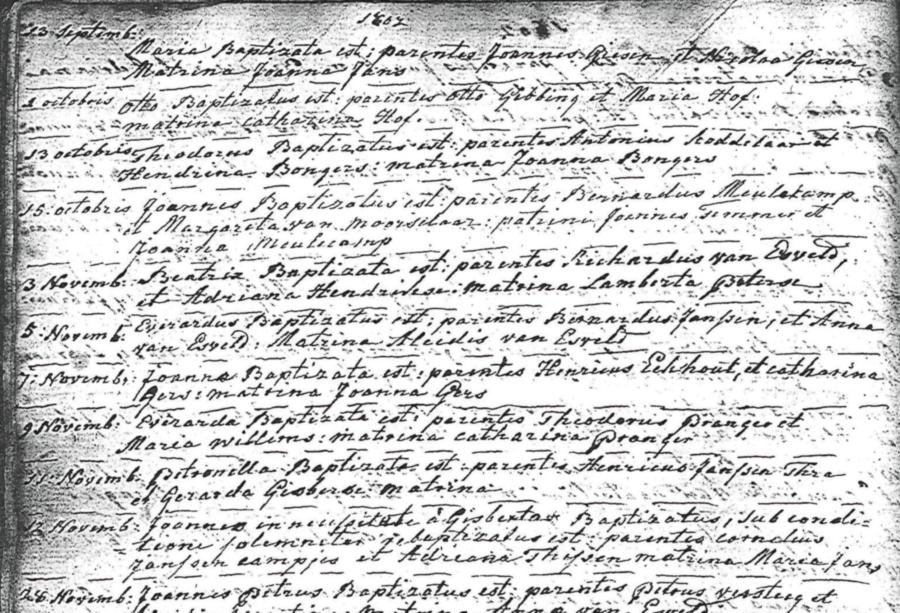 1802
13 Septemb:
Maria Baptizata est: parentes Joannes Giesen et Nicolaa Giesen
Matrina Joanna Jans
2 octobris Otto Baptizatus est: parentes Otto Gibbing et Maria Hof.
matrina catharina Hof.
13 octobris Theodorus Baptizatus est: parentes Antonius Koddelaar et
Hendrina Bongers: matrina Joanna Bongers
15 octobris Joannes Baptizatus est: parentes Bernardus Meulekamp
et Margareta van moorselaar: patrini Joannes simmer et
Joanna Meulecamp
3 Novemb: Beatrix Baptizata est: parentes Richardus van Esveld,
et Adriana Hendrikse: matrina Lamberta peterse
5: Novemb: Everardus Baptizatus est: parentes Bernardus Janssen, et Anna
van Esveld: Matrina Aleidis van Esveld
7: Novemb: Joanna Baptizata est: parentes Henricus Eekhout, et catharina
Gers: matrina Joanna Gers
9 Novemb: Everarda Baptizata est: parentes Theodorus pranger et
Maria willems: matrina catharina pranger
11: Novemb petronilla Baptizata est - parentes Henricus Janssen
et Gerarda Gisberse matrina
12 Novemb: Joannes in necessitate à Baptizatus, sub condi-
tione solemniter rebaptizatus est: parentes cornelius
Janssen campjes et Adriana Thijssen matrina Maria Jans
26 Novemb: Joannes petrus Baptizatus est: parentes petrus versteeg et
matrina Anna van Esveld